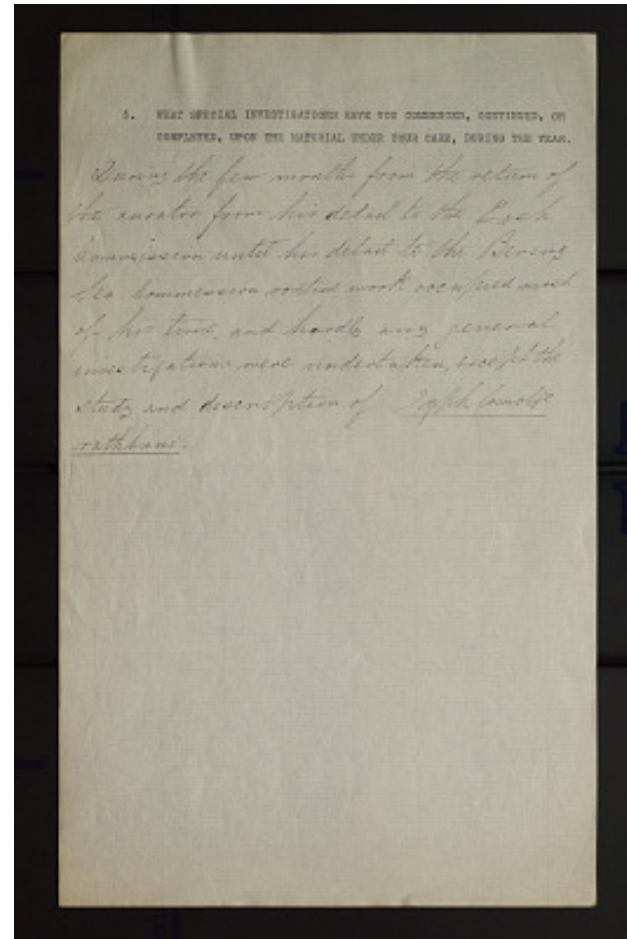 5. WHAT SPECIAL INVESTIGATIONS HAVE YOU COMMENCED, CONTINUED, OR
COMPLETED, UPON THE MATERIAL UNDER YOUR CARE, DURING THE YEAR.
During the few months from the return of
the curator from his detail to the Fish
Commission until his detail to the Bering
Sea Commission routine work occupied most
of his time, and hardly any general
investigations were undertaken, except the
study and description of
rathbuni.